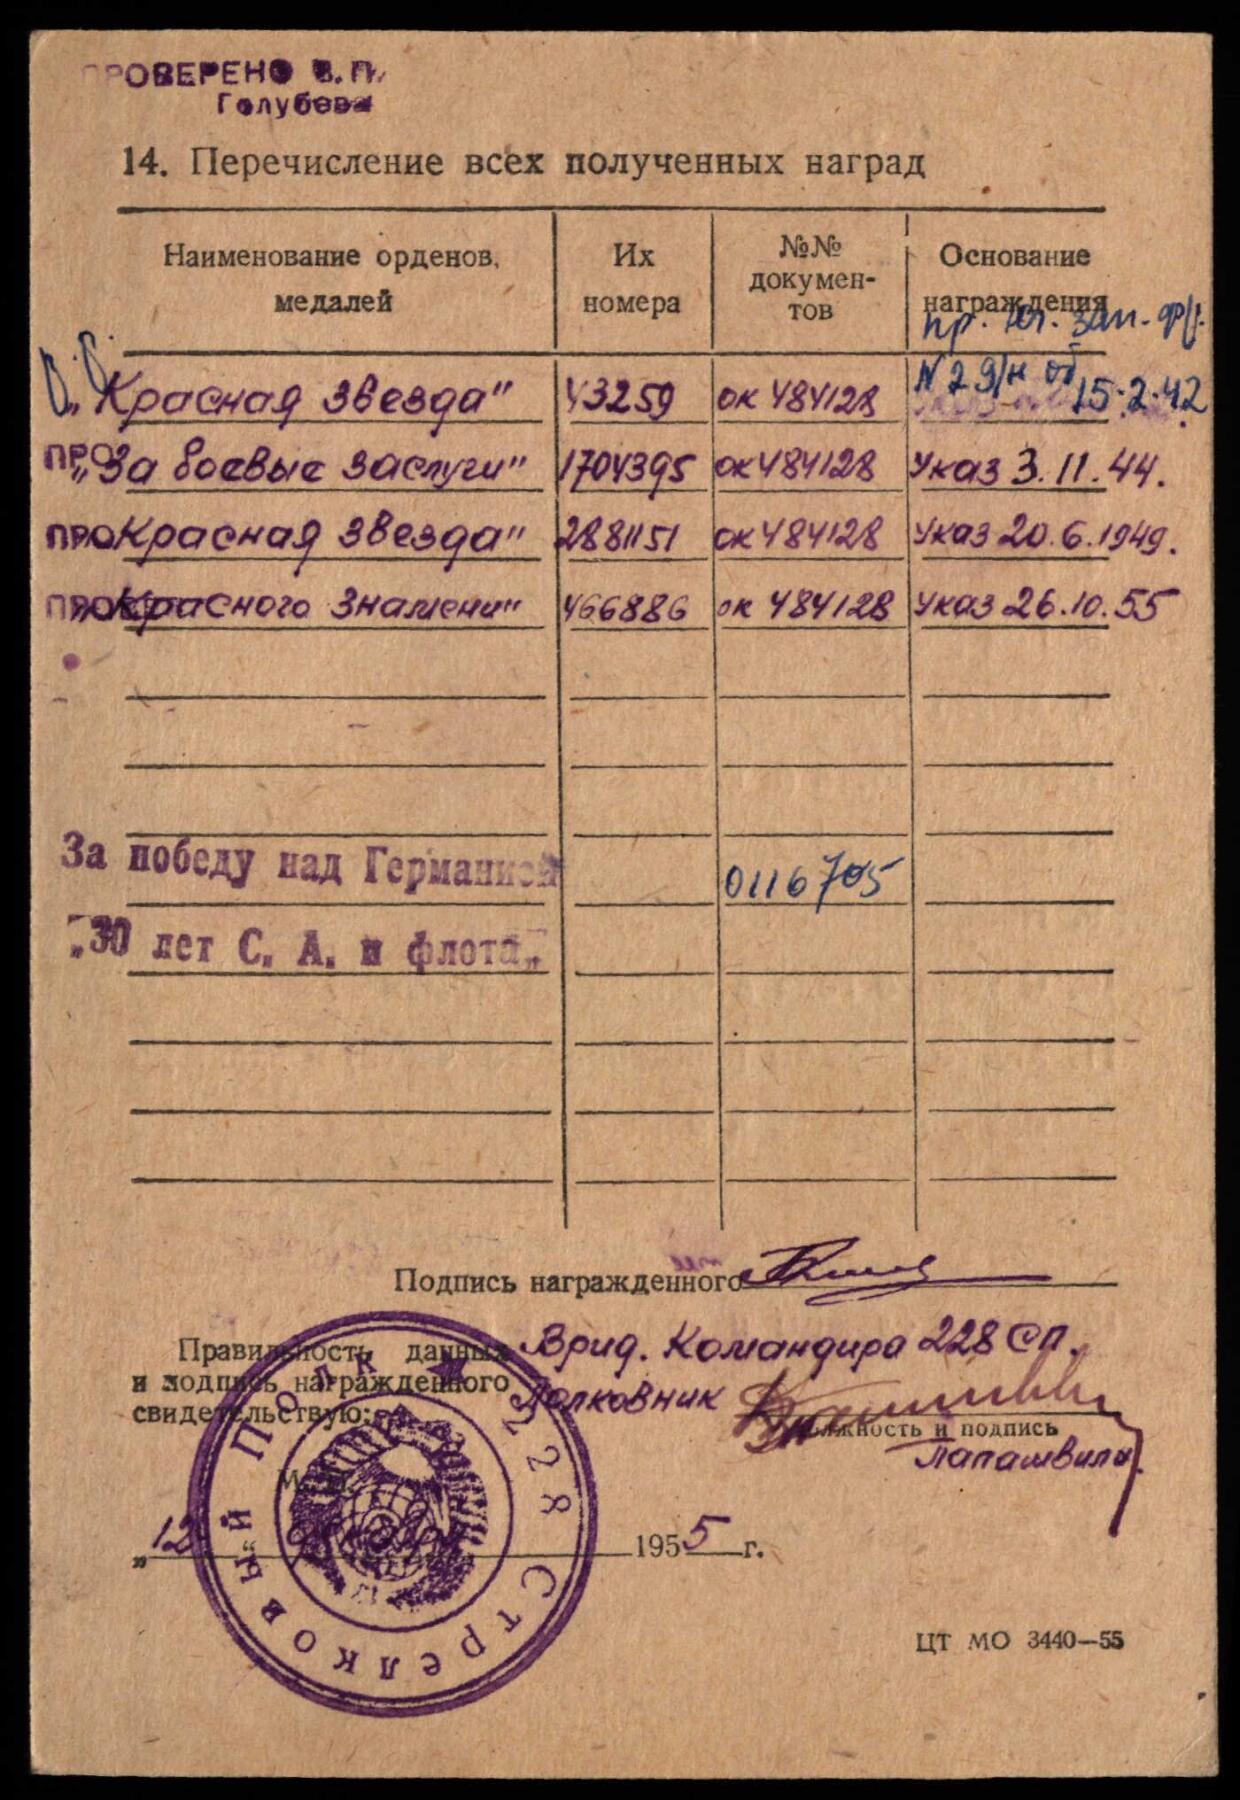 ПРОВЕРЕНО В. П.
Голубева
14. Перечисление всех полученных наград
Наименование орденов, медалей
Их номера
№№ докумен-тов
Основание награждения
пр. зап. фр.
"Красная звезда" 43259 ок 484128 N 29/н от 15.2.42
ПРО "За боевые заслуги" 1704395 ок 484128 Указ 3.11.44.
ПРО Красная звезда" 2881151 ок 484128 Указ 20.6.1949.
ПРО "Красного Знамени" 466886 ок 484128 Указ 26.10.55
За победу над Германией 0116705
„30 лет С. А. и флота„
Подпись награжденного
Правильность данных
и подпись награжденного
свидетельствую:
Врид. Командира 228 СП.
Полковник
Должность и подпись
Лапашвили
М. П.
228 Стрелковый Полк
„12" 1955 г.
ЦТ МО 3440—55